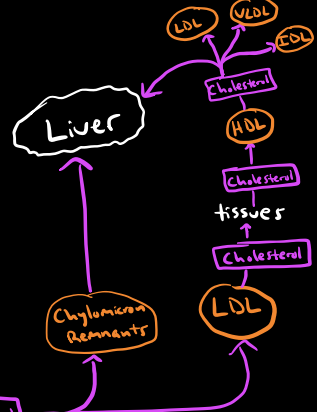 LDL
VLDL
IDL
Cholesterol
Liver
HDL
Cholesterol
tissues
Cholesterol
Chylomicron
Remnants
LDL